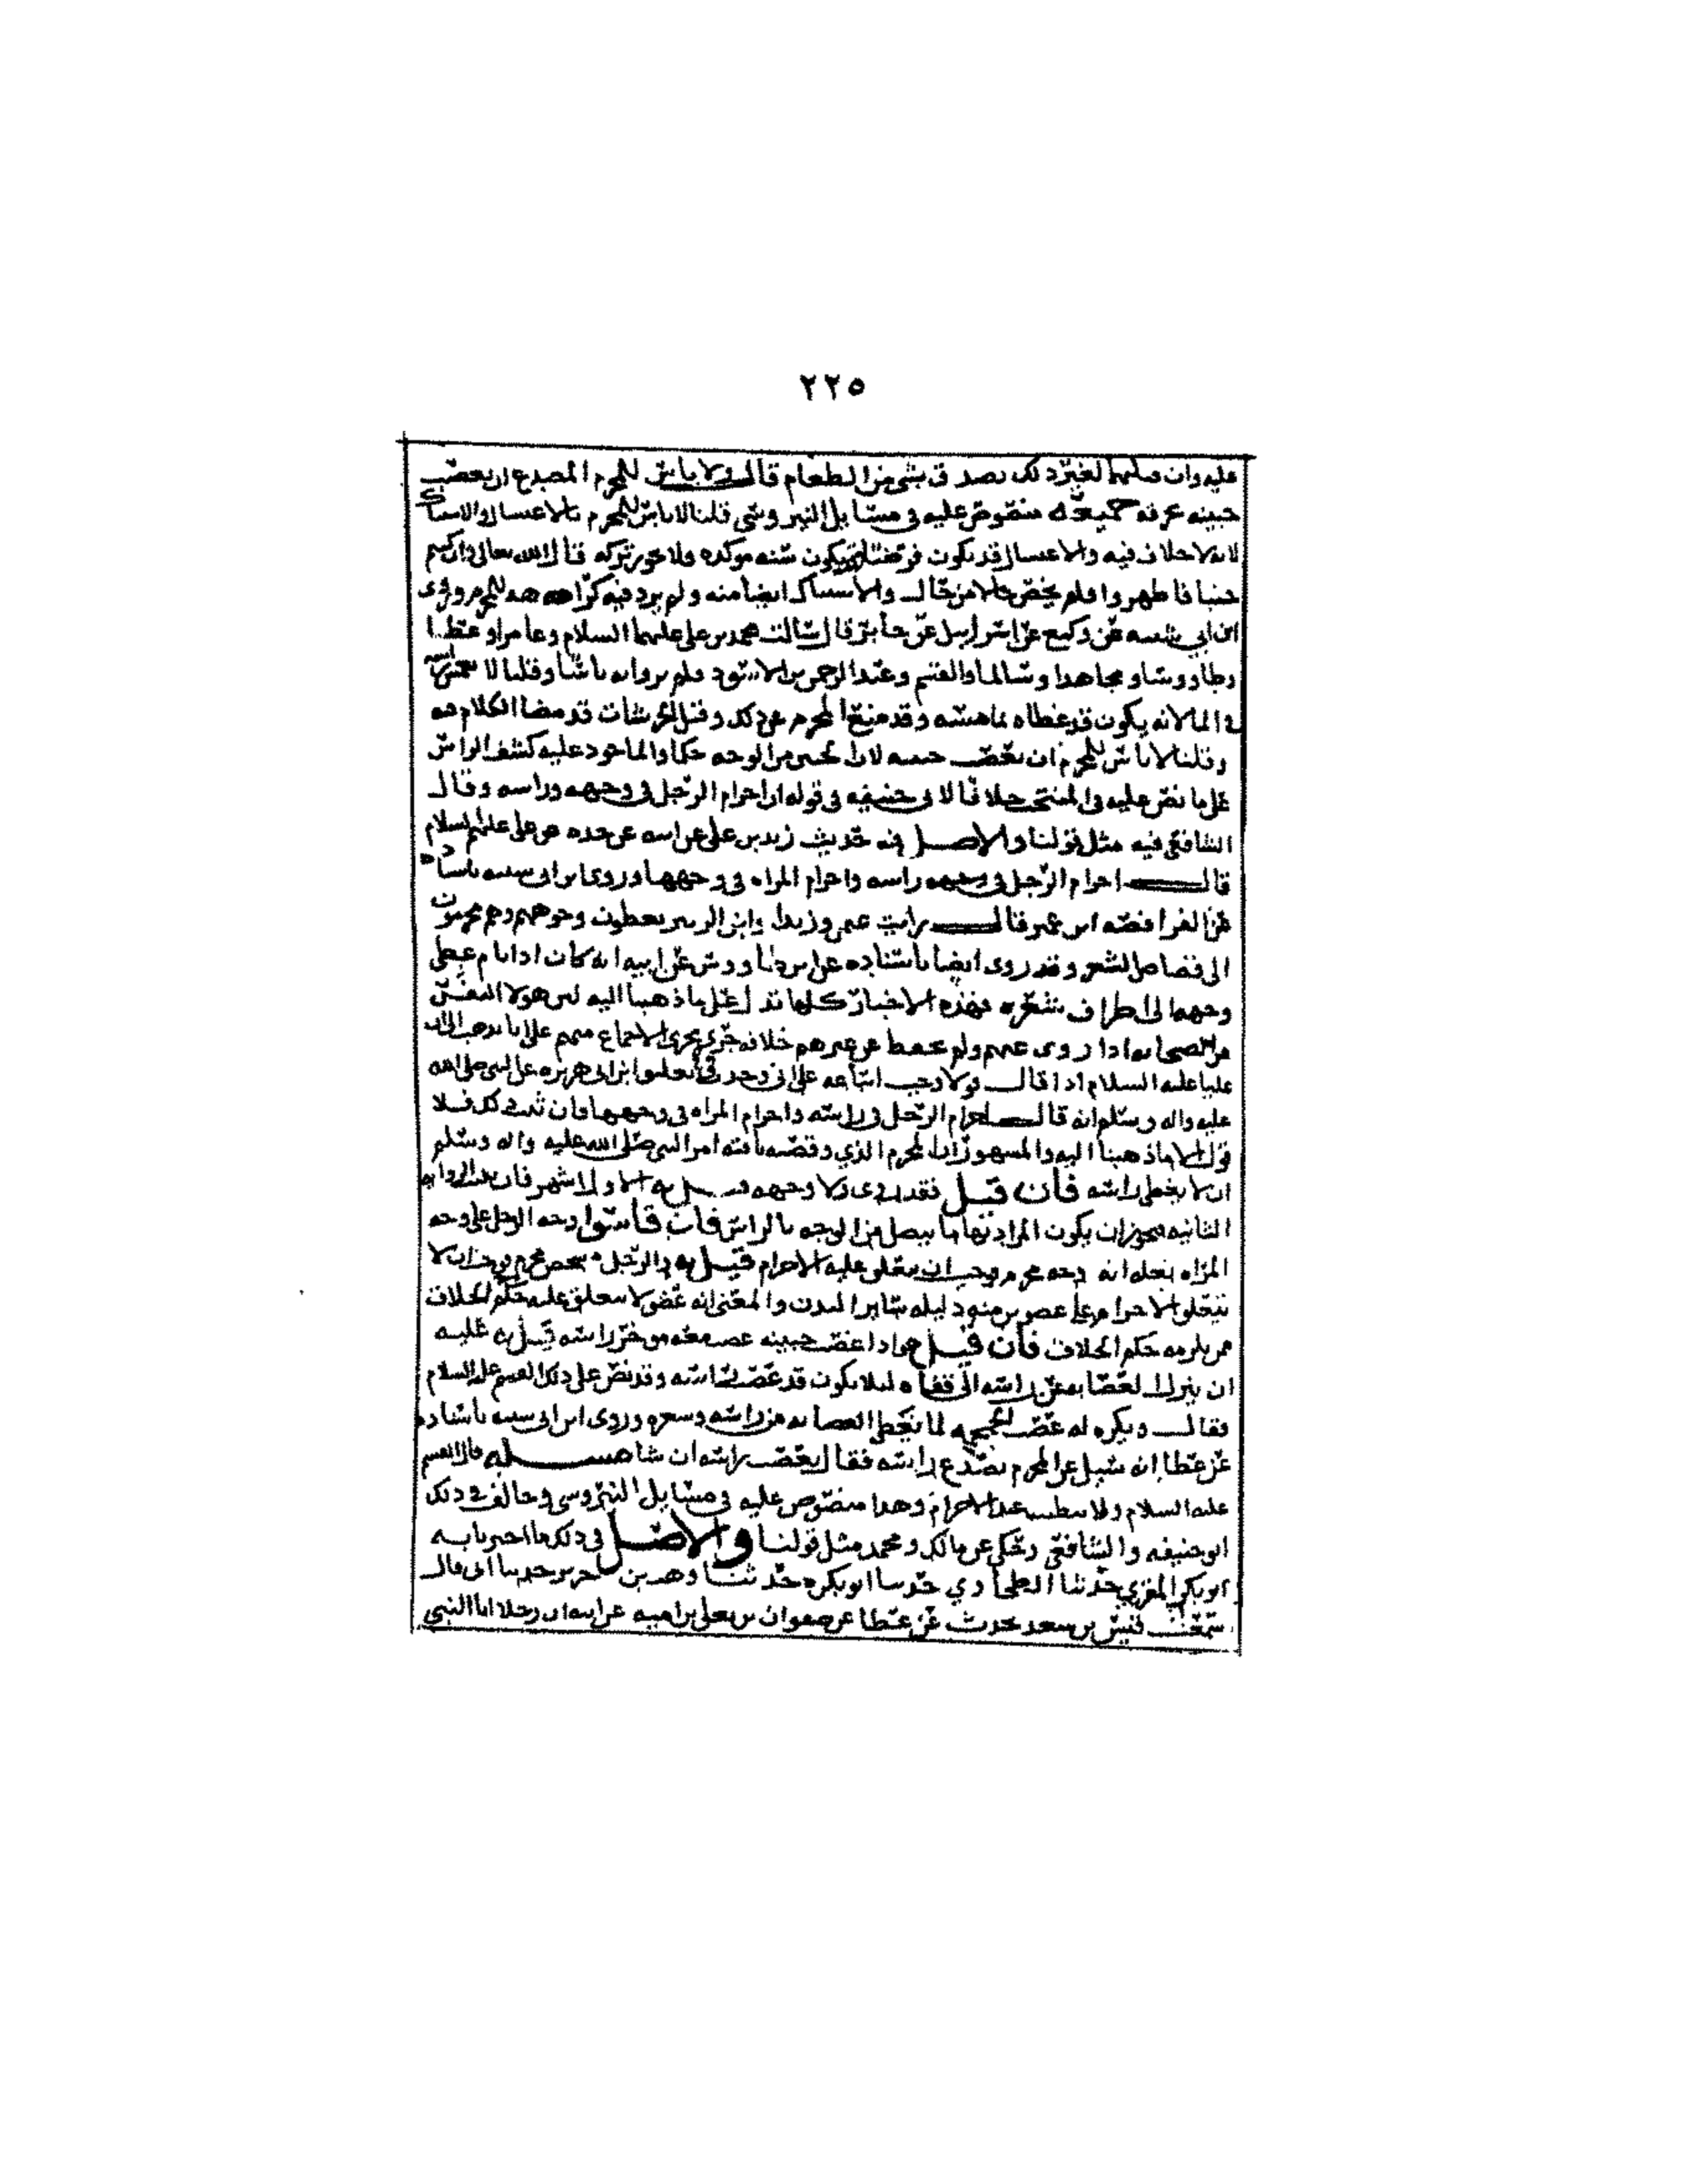 ٢٢٥
عليه وان قتلهما لغير ذلك تصدق بشي من الطعام قال ولا باس للمحرم المصدع ان يعصب
جبينه عرفه جميعه منصوص عليه في مسايل النيروسي قلنا لا باس للمحرم بالاغتسال والاستياك
لانه لا خلاف فيه والاغتسال قد يكون فرضا وقد يكون سنه موكده ولا يجوز تركه قال الله تعالى وان كنتم
جنبا فاطهروا فلم يخص حالا من حال والاستياك ايضا منه ولم يرد فيه كراهه للمحرم وروى
ابن ابي شيبه عن وكيع عن اسرايل عن جابر قال سالت محمد بن علي عليهما السلام وعامرا وعطا
وطاووسا ومجاهدا وسالما والقسم وعبد الرحمن بن الاسود ولم يروا به باسا وقلنا لا يغمس راسه
في الما لانه يكون قد غطاه بما هسته وقد منع المحرم عن ذلك وقتل الحرشات قد مضا الكلام فيه
وقلنا لا باس للمحرم ان يعصب جبينه لان الجبين من الوجه حكما والماخوذ عليه كشف الراس
على ما نص عليه في المنتخب خلافا لابي حنيفه في قوله ان احرام الرجل في وجهه وراسه وقال
الشافعي فيه مثل قولنا والاصل فيه حديث زيد بن علي عن ابيه عن جده عن علي عليهم السلام
قال احرام الرجل في راسه واحرام المراه في وجهها وروى ابن ابي شيبه باسناده
عن الفرافصه ابن عمير قال رايت عمر وزيدا وابن الزبير يغطون وجوههم وهم محرمون
الى قصاص الشعر وقد روى ايضا باسناده عن ابن طاووس عن ابيه انه كان اذا نام غطى
وجهه الى اطراف شعره فهذه الاخبار كلها تدل على ما ذهبنا اليه لان هولا النفر
من الصحابه اذا روي عنهم ولم يحفظ عن غيرهم خلافه جرى مجرى الاجماع منهم على انا نذهب الى ان
عليا عليه السلام اذا قال قولا وجب اتباعه على ان وجدت في تعليق ابن ابي هريره عن النبي صلى الله
عليه واله وسلم انه قال احرام الرجل في راسه واحرام المراه في وجهها فان ثبت ذلك فلا
قول الا ما ذهبنا اليه والمشهور ان المحرم الذي وقصته ناقته امر النبي صلى الله عليه واله وسلم
ان لا يغطى راسه فان قيل فقد روي ولا وجهه قيل له الاول اشهر فان ثبت الروايه
الثانيه فيجوز ان يكون المراد بها ما يتصل من الوجه بالراس فان قاسوا وجه الرجل على وجه
المراه بعله انه وجه محرم وجب ان يتعلق عليه الاحرام قيل له والرجل شخص محرم فوجب ان لا
يتعلق الاحرام على عضوين منه دليله ساير البدن والمعنى انه عضو لا يتعلق عليه حكم الحلاق
ممن يلزمه حكم الحلاق فان قيل فاذا عصب جبينه عصب معه موخر راسه قيل له عليه
ان ينزل العصابه عن راسه الى قفاه ليلا يكون قد عصب راسه وقد نص على ذلك القسم عليه السلام
فقال ويكره له عصب الجبهه لما تغطي العصابه من راسه وشعره وروى ابن ابي شيبه باسناده
عن عطا انه سيل عن المحرم يصدع راسه فقال يعصب راسه ان شا مسله قال القسم
عليه السلام ولا يتطيب عند الاحرام وهذا منصوص عليه في مسايل النيروسي وخالف في ذلك
ابو حنيفه والشافعي وحكى عن مالك ومحمد مثل قولنا والاصل في ذلك ما اخبرنا به
ابو بكر المقري حدثنا الطحاوي حدثنا ابو بكره حدثنا وهب بن جرير حدثنا ابي قال
سمعت قيس بن سعد يحدث عن عطا عن صفوان بن يعلى بن اميه عن ابيه ان رجلا اتا النبي